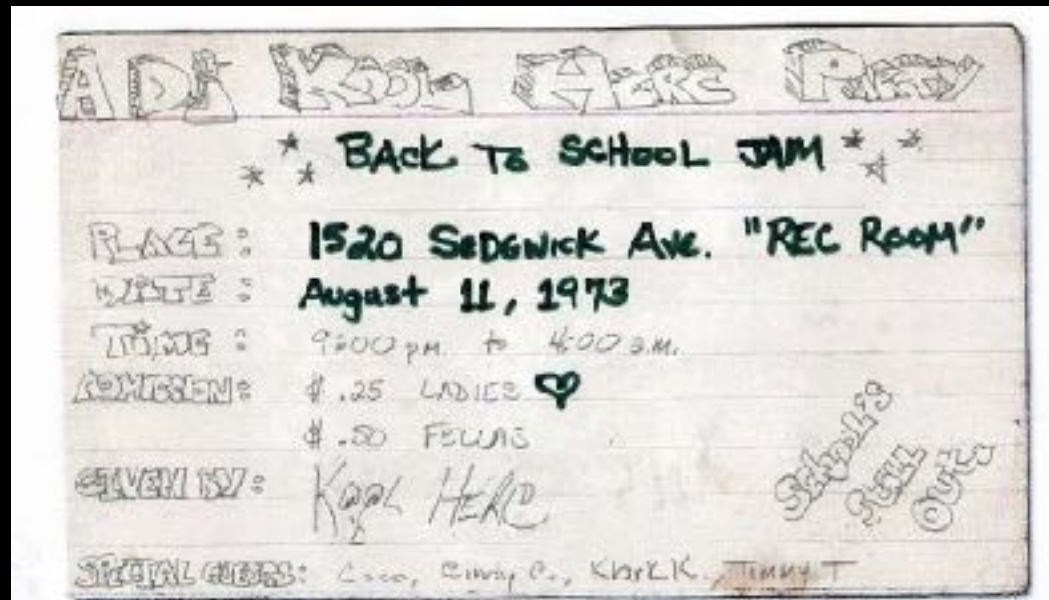 A DJ KOOL HERC PARTY
BACK TO SCHOOL JAM
PLACE: 1520 SEDGWICK AVE. "REC ROOM"
DATE: August 11, 1973
TIME: 9:00 PM. to 4:00 a.M.
ADMISSION: $ .25 LADIES ♡
$ .50 FELLAS
GIVEN BY: KOOL HERC
SPECIAL GUESTS: Coco, Cindy C., KlarkK., Timmy T
SCHOOL'S
STILL
OUT